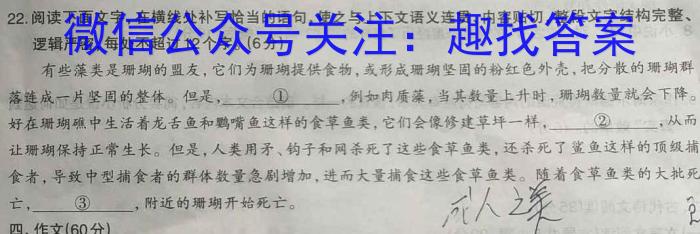 22.阅读下面文字,在横线处补写恰当的语句,使之与上下文语义连贯,内容贴切,整段文字结构完整、
逻辑严密,每处不超过12个字。(6分)
微信公众号关注:趣找答案
有些藻类是珊瑚的盟友,它们为珊瑚提供食物,或形成珊瑚坚固的粉红色外壳,把分散的珊瑚群
落链成一片坚固的整体。但是,①,例如肉质藻,当其数量上升时,珊瑚数量就会下降。
好在珊瑚礁中生活着龙舌鱼和鹦嘴鱼这样的食草鱼类,它们会像修建草坪一样,②,从而
让珊瑚保持正常生长。但是,人类用矛、钩子和网杀死了这些食草鱼类,还杀死了鲨鱼这样的顶级捕
食者,导致中型捕食者的群体数量急剧增加,进而大量捕食这些食草鱼类。随着食草鱼类的大批死
亡,③,附近的珊瑚开始死亡。
人之美
四、作文(60分)